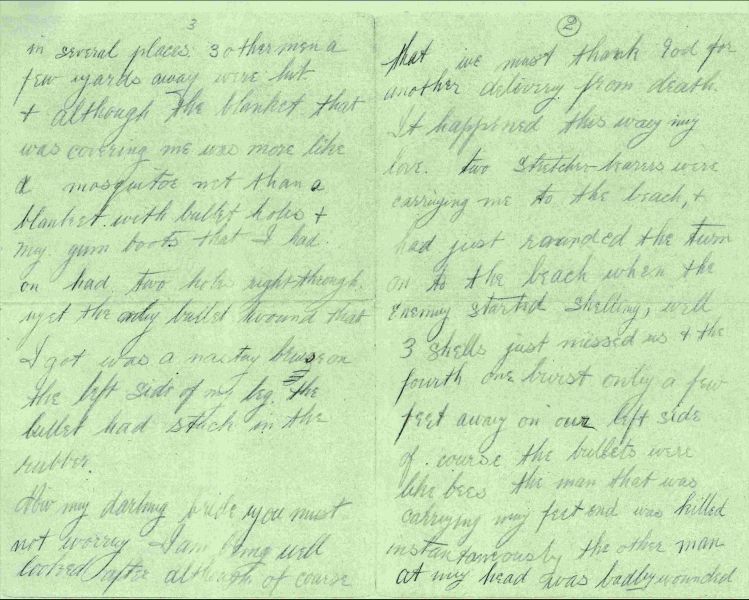 2
that we must thank God for
another delivery from death.
It happened this way my
love. two stretcher bearers were
carrying me to the beach, +
had just rounded the turn
on to the beach when the
Enemy started shelling, well
3 shells just missed us + the
fourth one burst only a few
feet away on our left side
of course the bullets were
like bees the man that was
carrying my feet end was killed
instantaneously the other man
at my head was badly wounded
3
in several places. 3 other men a
few yards away were hit
+ although the blanket that
was covering me was more like
a mosquitoe net than a
blanket with bullet holes +
my gum boots that I had
on had two hole right through
yet the only bullet wound that
I got was a nastay bruse on
the left side of my leg. the
bullet had stuck in the
rubber.
Now my darling bride you must
not worry I am being well
looked after although of course